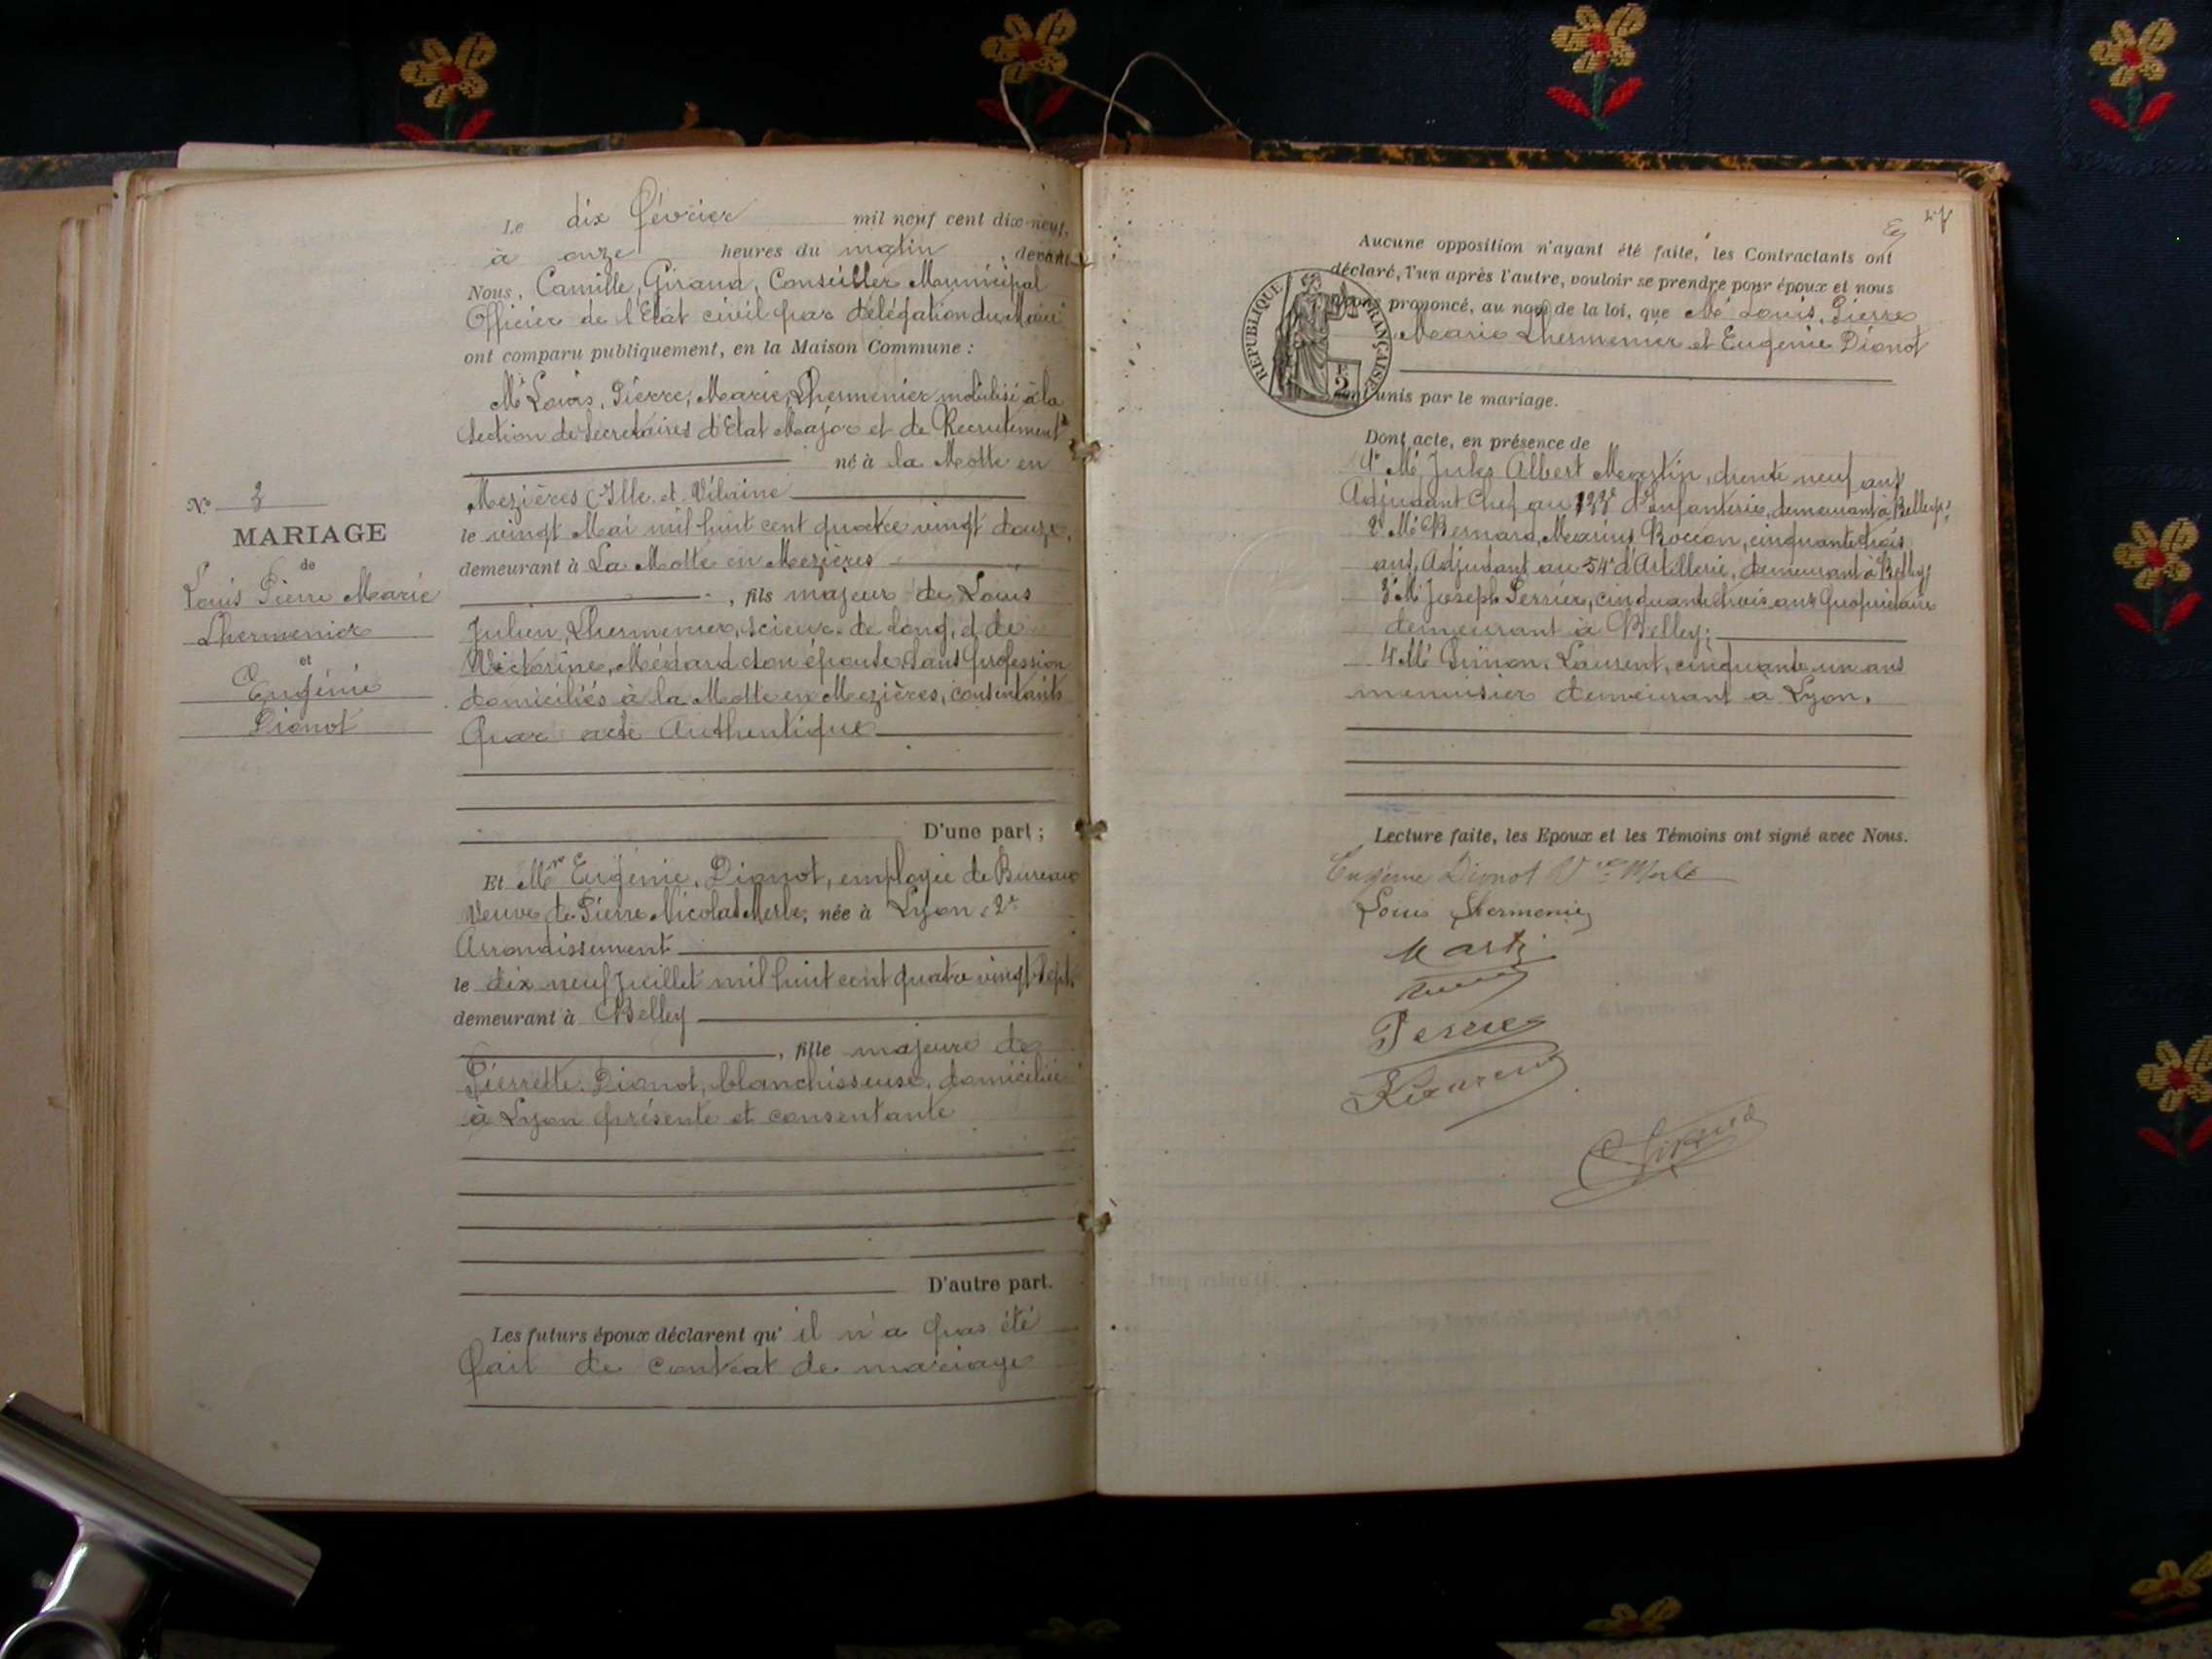 Le dix février mil neuf cent dix-neuf,
à onze heures du matin, devant
Nous, Camille, Giraud, Conseiller Municipal
Officier de l'Etat civil par délégation du Maire
ont comparu publiquement, en la Maison Commune :
Mr Louis, Pierre, Marie, Lhermenier, mobilisé à la
Section de Secretaires d'Etat Major et de Recrutement
né à la Motte en
Mezières (Ille et Vilaine
le vingt Mai mil huit cent quatre vingt douze,
demeurant à La Motte en Mezières
, fils majeur de Louis
Julien, Lhermenier, scieur de long, et de
Victorine, Médard son épouse, sans profession
domiciliés à la Motte en Mezières, consentants
par acte Authentique
D'une part ;
Et Me Eugénie, Dignot, employée de Bureau
Veuve de Pierre Nicolas Merle, née à Lyon, 2e
Arrondissement
le dix neuf Juillet mil huit cent quatre vingt sept,
demeurant à Belley
, fille majeure de
Pierrette Dignot, blanchisseuse, domiciliée
à Lyon présente et consentante
D'autre part.
Les futurs époux déclarent qu'il n'a pas été
fait de contrat de mariage
No 3
MARIAGE
de
Louis Pierre Marie
Lhermenier
et
Eugénie
Dignot
Aucune opposition n'ayant été faite, les Contractants ont
déclaré, l'un après l'autre, vouloir se prendre pour époux et nous
avons prononcé, au nom de la loi, que Mr Louis, Pierre
Marie Lhermenier et Eugénie Dignot
RÉPUBLIQUE FRANÇAISE
2 F
sont unis par le mariage.
Dont acte, en présence de
1° Mr Jules Albert Martin, trente neuf ans
Adjudant Chef au 133e d'Infanterie, demeurant à Belley;
2° Mr Bernard, Marius, cinquante trois
ans, Adjudant au 54e d'Artillerie, demeurant à Belley;
3° Mr Joseph Perrier, cinquante trois ans propriétaire
demeurant à Belley;
4° Mr Laurent, cinquante un ans
menuisier demeurant à Lyon.
Lecture faite, les Epoux et les Témoins ont signé avec Nous.
Eugénie Dignot Vve Merle
Louis Lhermenier
Martin
Perrier
Giraud